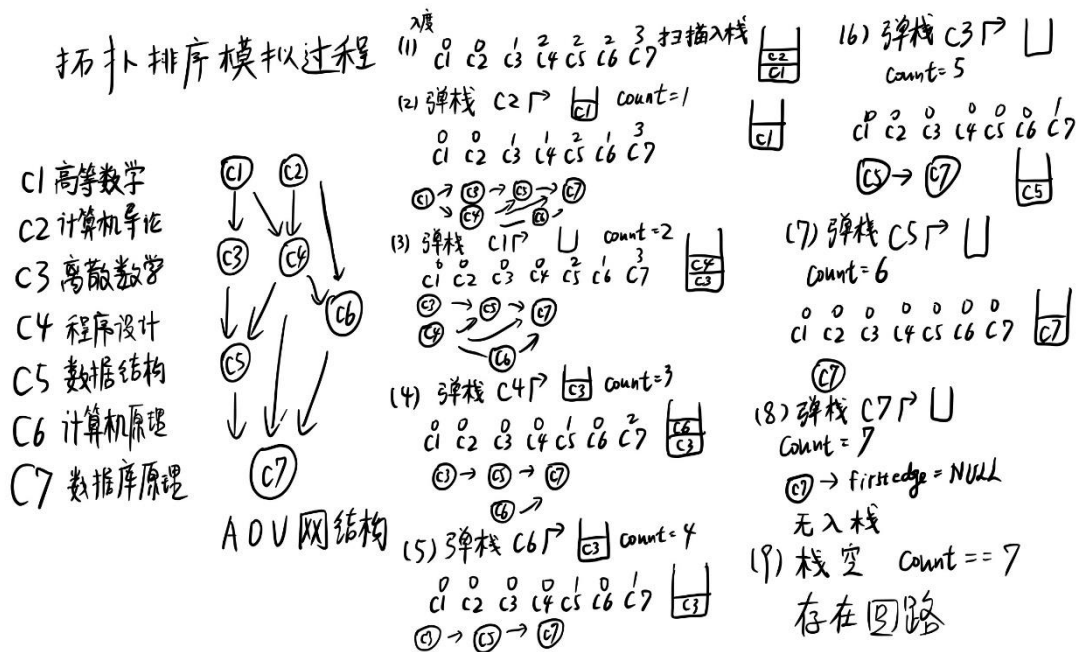 拓扑排序模拟过程
C1 高等数学
C2 计算机导论
C3 离散数学
C4 程序设计
C5 数据结构
C6 计算机原理
C7 数据库原理
C1 C2
C3 C4
C6
C5
C7
AOV网结构
入度
(1) 0 0 1 2 2 2 3 扫描入栈
C1 C2 C3 C4 C5 C6 C7
C2
C1
(2) 弹栈 C2 C1 count=1
0 0 1 1 2 1 3
C1 C2 C3 C4 C5 C6 C7
C1
C1 → C3 → C5 → C7
C4 C6
(3) 弹栈 C1 count=2
0 0 0 0 2 1 3
C1 C2 C3 C4 C5 C6 C7
C4
C3
C3 → C5 → C7
C4
C6
(4) 弹栈 C4 C3 count=3
0 0 0 0 1 0 2
C1 C2 C3 C4 C5 C6 C7
C6
C3
C3 → C5 → C7
C6
(5) 弹栈 C6 C3 count=4
0 0 0 0 1 0 1
C1 C2 C3 C4 C5 C6 C7
C3
C3 → C5 → C7
(6) 弹栈 C3
count=5
0 0 0 0 0 0 1
C1 C2 C3 C4 C5 C6 C7
C5 → C7
C5
(7) 弹栈 C5
count=6
0 0 0 0 0 0 0
C1 C2 C3 C4 C5 C6 C7
C7
C7
(8) 弹栈 C7
count=7
C7 → firstedge=NULL
无入栈
(9) 栈空 count==7
存在回路